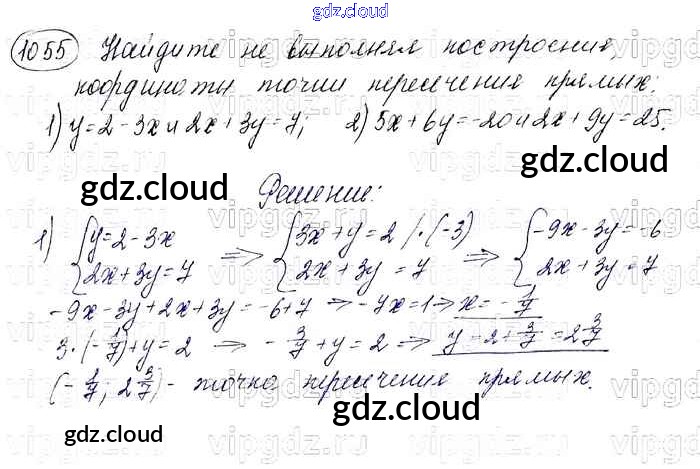 gdz.cloud
1055 Найдите не выполняя построения,
координаты точки пересечения прямых:
1) y = 2 - 3x и 2x + 3y = 7; 2) 5x + 6y = -20 и 2x + 9y = 25.
gdz.cloud gdz.cloud
Решение:
1) { y = 2 - 3x ⇒ { 3x + y = 2 /·(-3) ⇒ { -9x - 3y = -6
2x + 3y = 7 2x + 3y = 7 2x + 3y = 7
-9x - 3y + 2x + 3y = -6 + 7 ⇒ -7x = 1 ⇒ x = -1/7
3·(-1/7) + y = 2 ⇒ -3/7 + y = 2 ⇒ y = 2 + 3/7 = 2 3/7
(-1/7; 2 3/7) - точка пересечения прямых.
gdz.cloud gdz.cloud